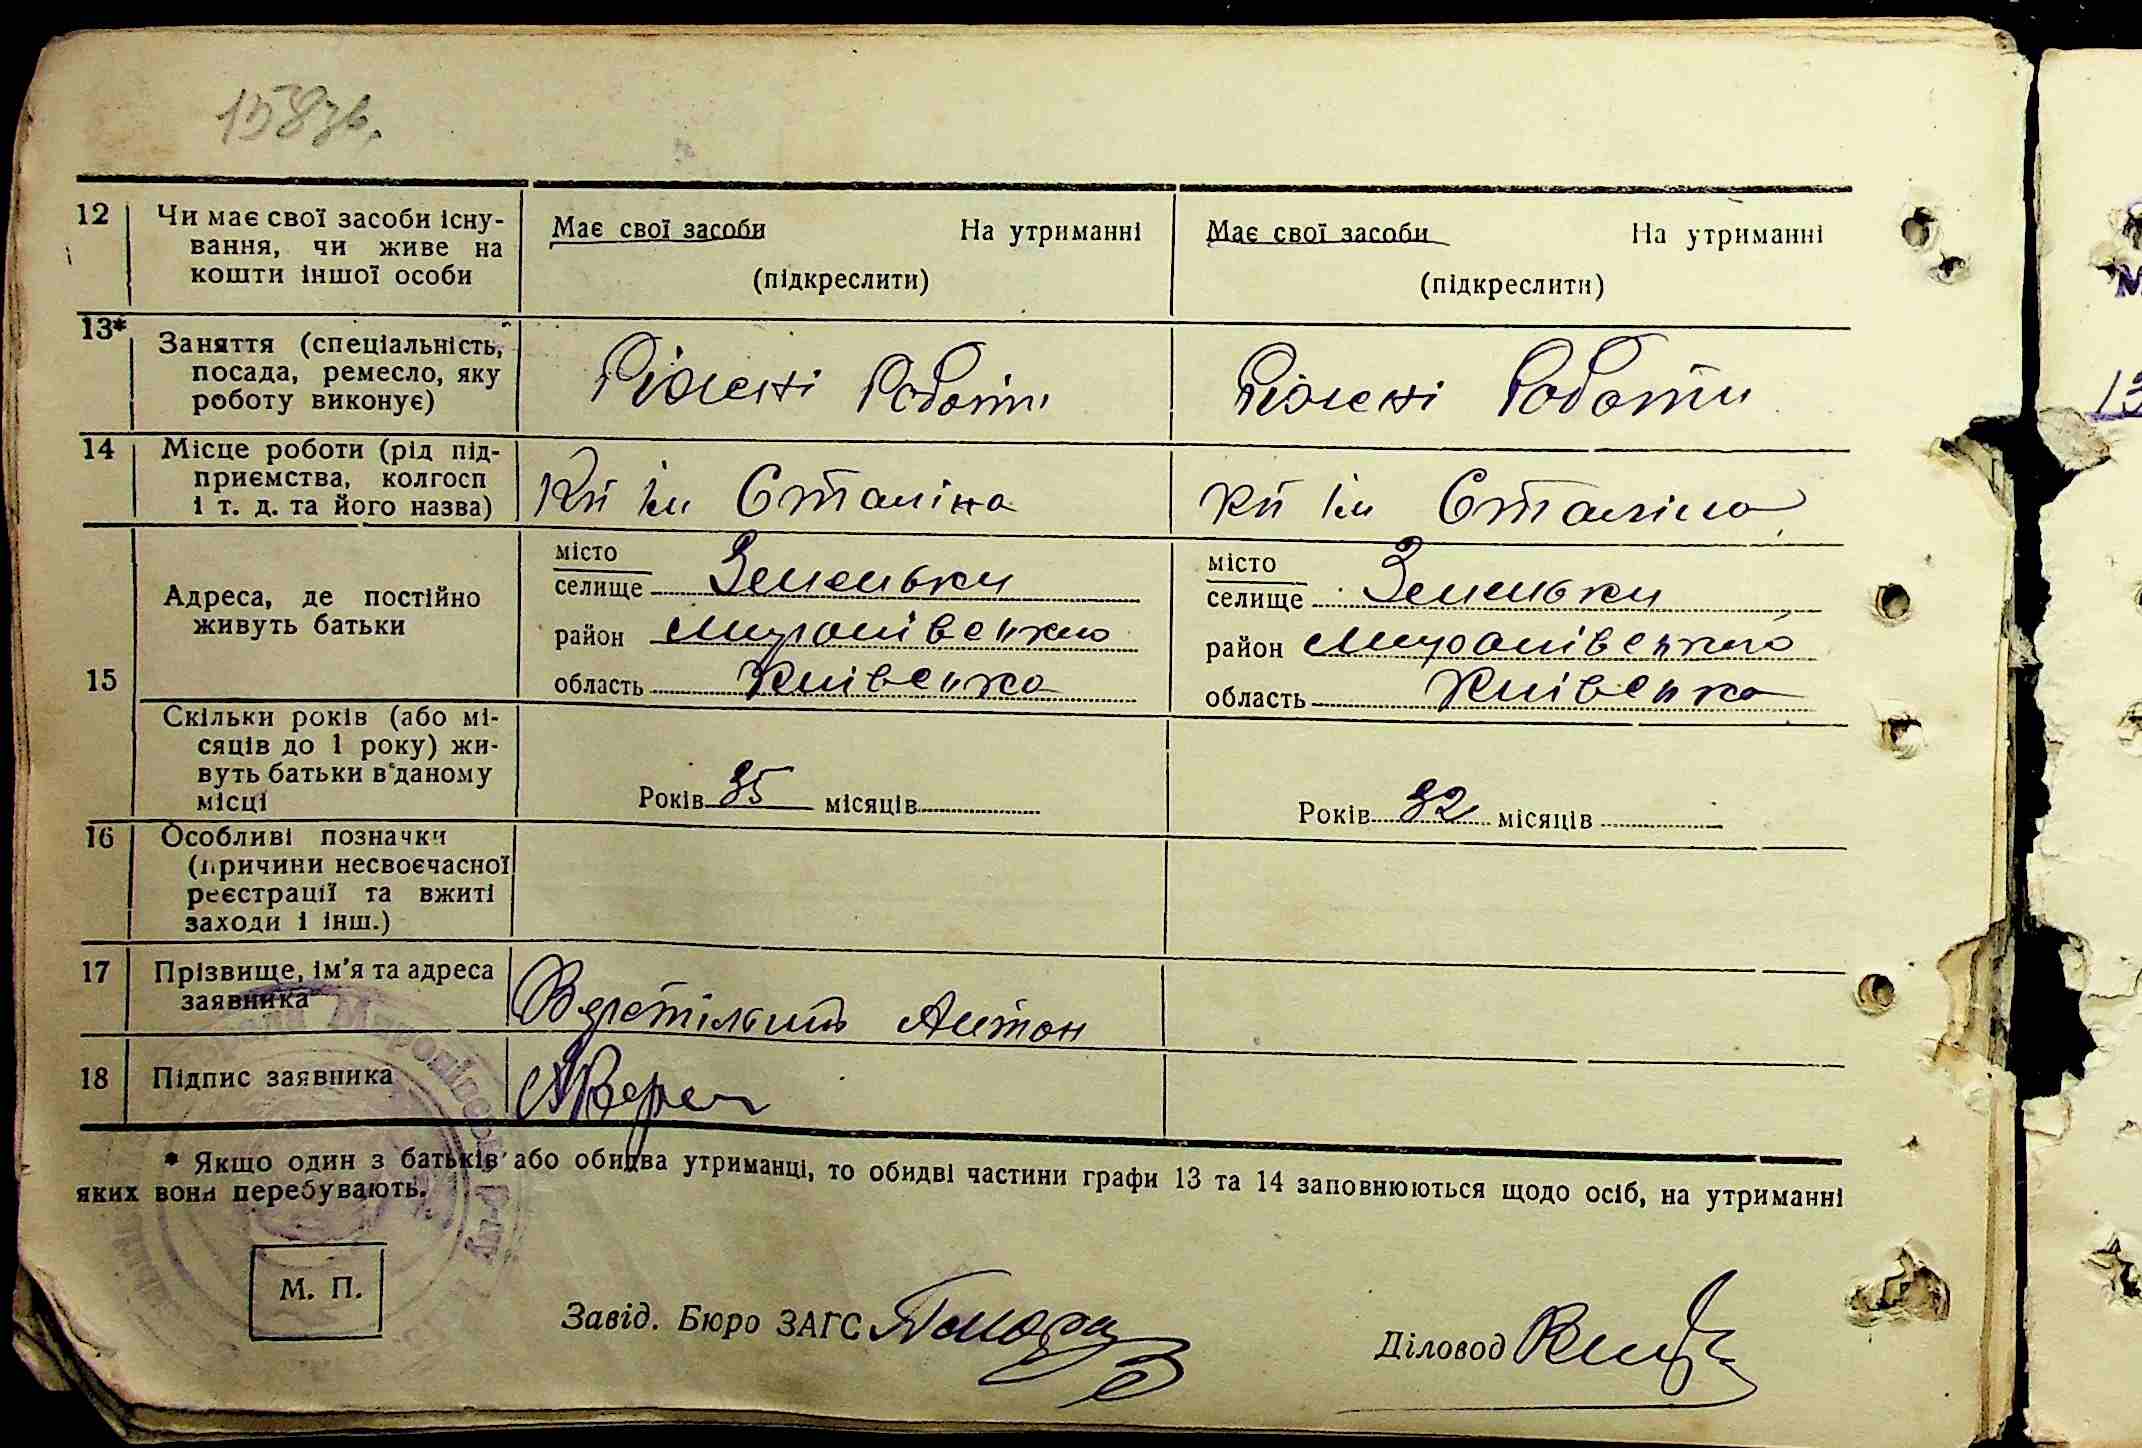 158 зв.
12 Чи має свої засоби існу- Має свої засоби На утриманні Має свої засоби На утриманні
вання, чи живе на
кошти іншої особи (підкреслити) (підкреслити)
13* Заняття (спеціальність, Ріжені Роботи Ріжені Роботи
посада, ремесло, яку
роботу виконує)
14 Місце роботи (рід під- Кп ім Сталіна Кп ім Сталіна
приємства, колгосп
і т. д. та його назва)
15 Адреса, де постійно
живуть батьки
місто місто
селище Зеленьки селище Зеленьки
район Миронівського район Миронівського
область Київська область Київська
Скільки років (або мі-
сяців до 1 року) жи-
вуть батьки в даному
місці
Років 35 місяців Років 32 місяців
16 Особливі позначки
(причини несвоєчасної
реєстрації та вжиті
заходи і інш.)
17 Прізвище, ім'я та адреса
заявника Антон
18 Підпис заявника
* Якщо один з батьків або обидва утриманці, то обидві частини графи 13 та 14 заповнюються щодо осіб, на утриманні
яких вони перебувають.
М. П.
Завід. Бюро ЗАГС Діловод